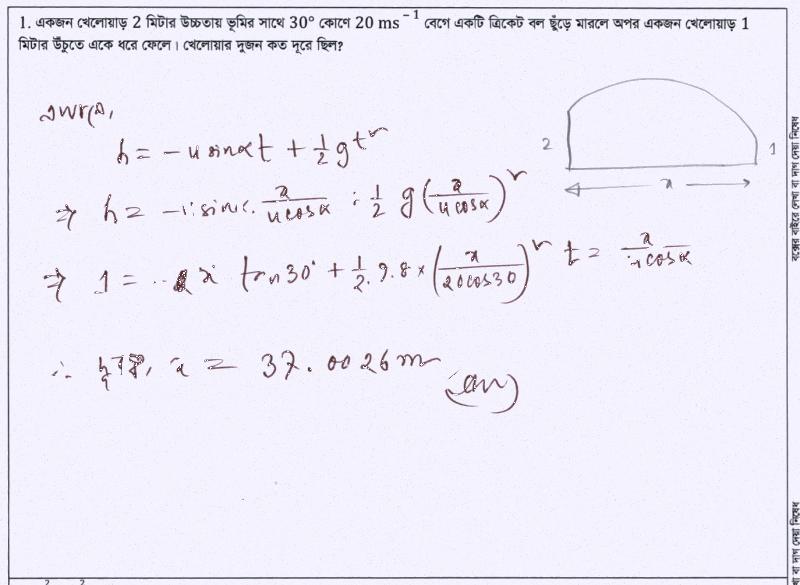 1. একজন খেলোয়াড় 2 মিটার উচ্চতায় ভূমির সাথে 30° কোণে 20 ms⁻¹ বেগে একটি ক্রিকেট বল ছুঁড়ে মারলে অপর একজন খেলোয়াড় 1
মিটার উঁচুতে একে ধরে ফেলে। খেলোয়ার দুজন কত দূরে ছিল?
আমরা জানি,
h = -u sinα t + 1/2 g t²
2
1
x
⇒ h = -u sinα. x/(u cosα) + 1/2 g (x/(u cosα))²
⇒ 1 = -x tan 30° + 1/2 . 9.8 × (x/(20 cos 30))²
t = x/(u cosα)
∴ দূরত্ব, x = 37.0026 m
(Ans)
বক্সের বাইরে লেখা বা দাগ দেয়া নিষেধ
বা দাগ দেয়া নিষেধ